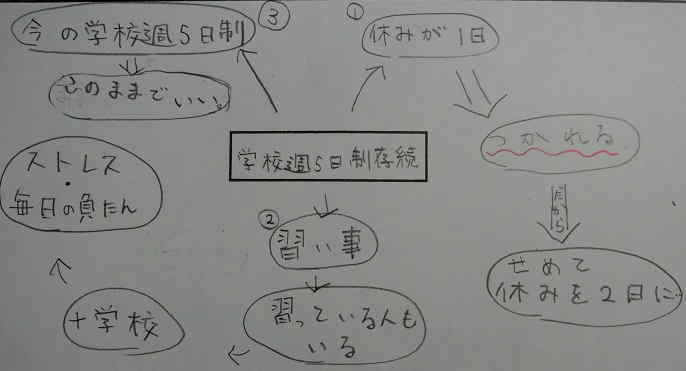 ③
今の学校週5日制
このままでいい。
①
休みが1日
つかれる
だから
せめて
休みを2日に
学校週5日制存続
②
習い事
習っている人も
いる
+学校
ストレス
・
毎日の負たん